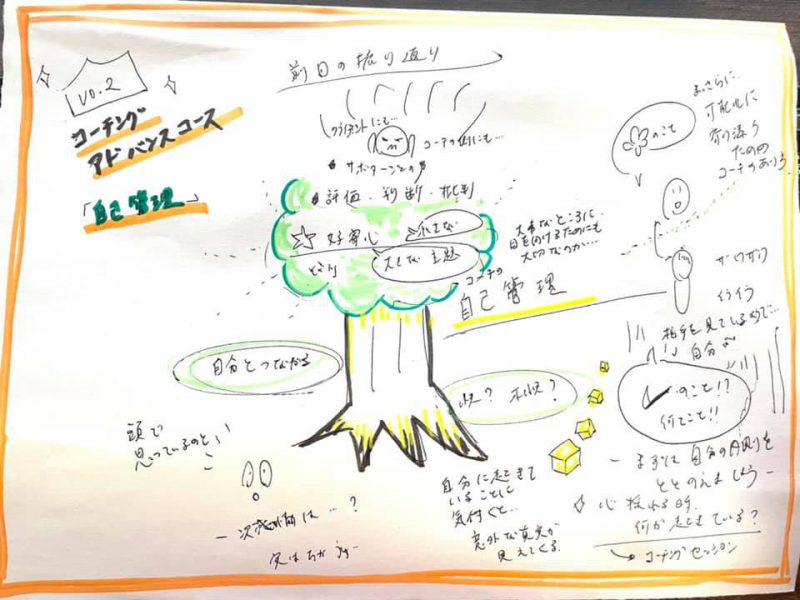 VO.2
コーチング
アドバンスコース
「自己管理」
前日の振り返り
クライアントにも…
コーチの側にも…
サボタージュの声
評価・判断・批判
☆ 好奇心
大きな主題
大事なところに
目を向けるためにも
大切なのが…
コーチの
自己管理
まっさらに…
可能性に
寄り添う
ための
コーチのあり方
のこと
ザワザワ
イライラ
相手を見ているようで…
自分が
のこと!?
何てこと!!
自分とつながる
頭で
思っているのと
一次感情は…?
自分に起きて
いることに
気付くと…
意外な真実が
見えてくる。
- まずは自分の内側を
ととのえましょう -
心揺れる時、
何が起きている?
→ コーチングセッション